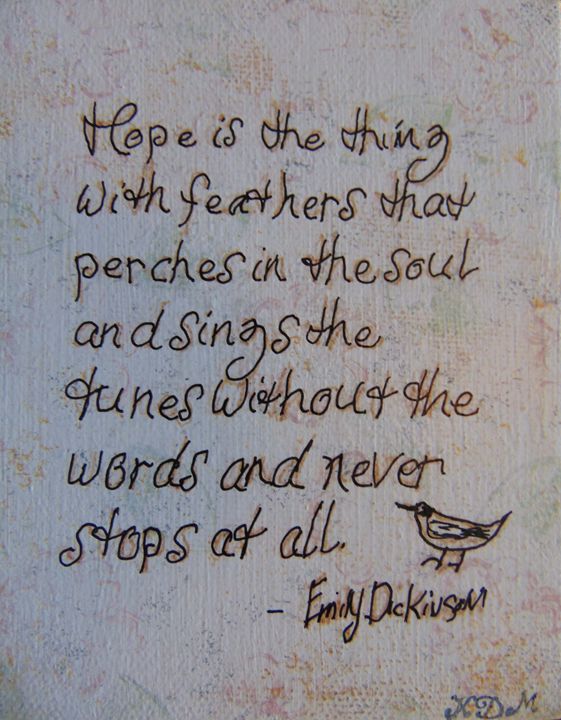 Hope is the thing
with feathers that
perches in the soul
and sings the
tunes without the
words and never
stops at all.
- Emily Dickinson
KDM